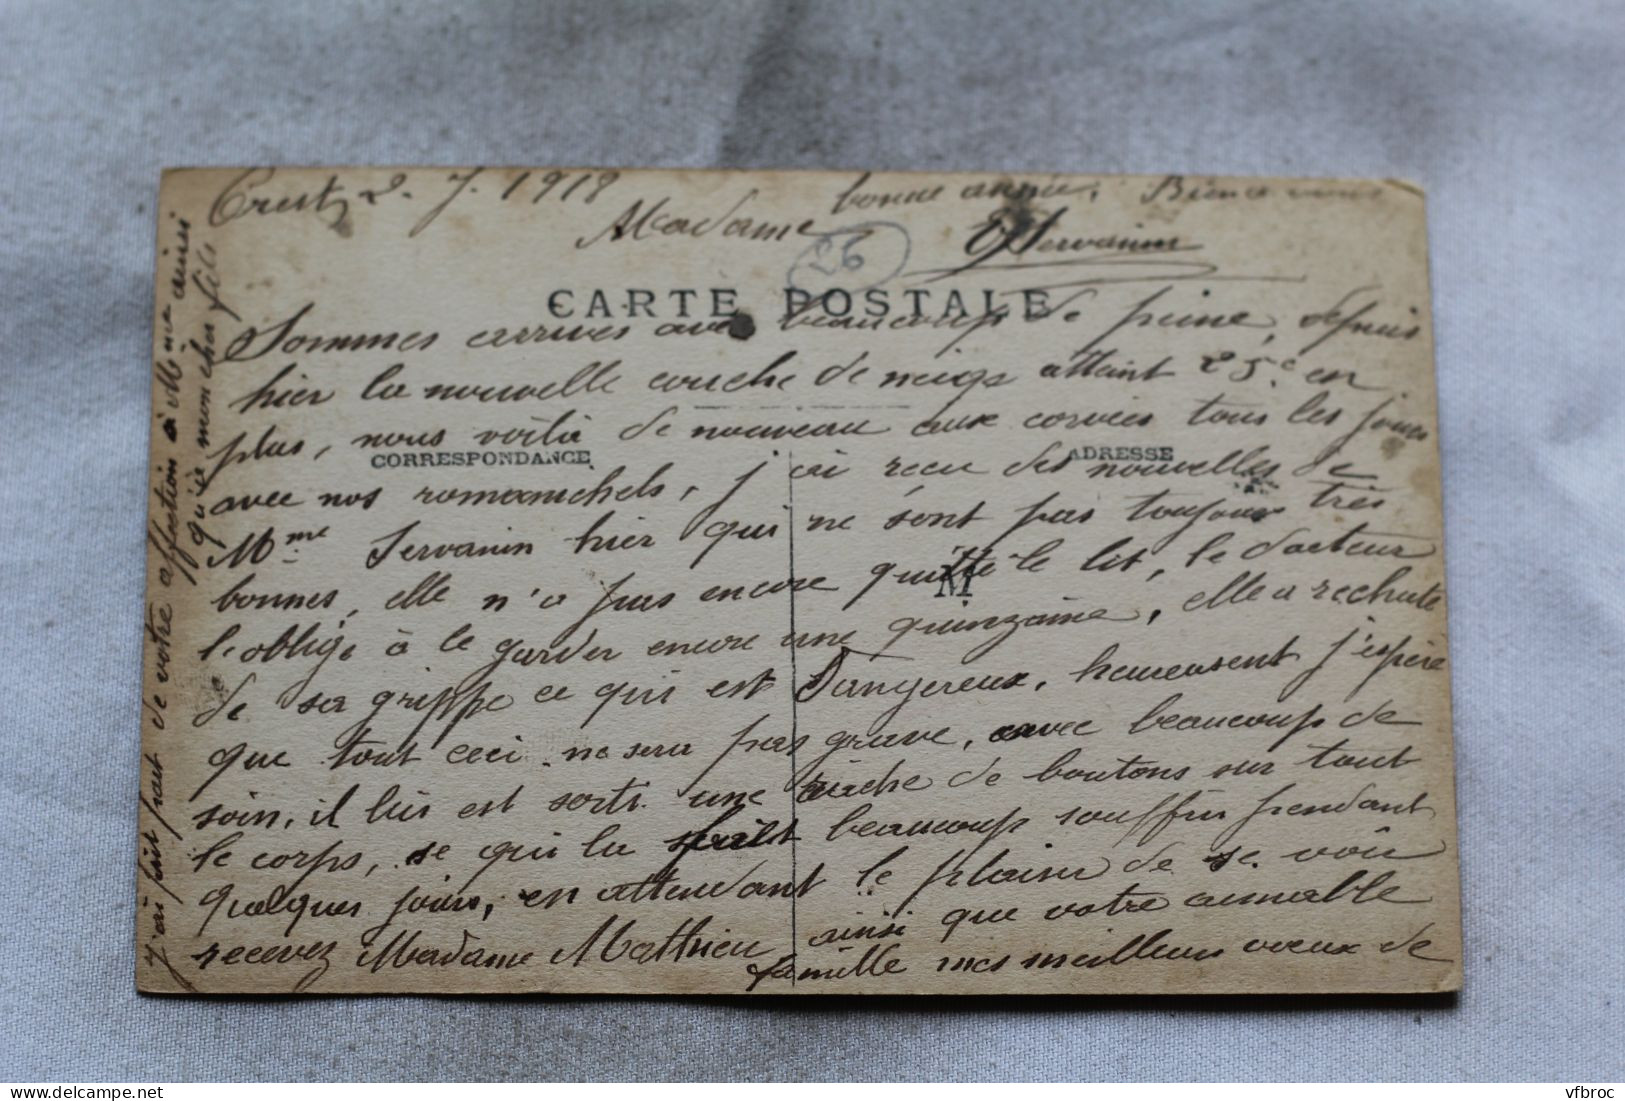 Crest 2. J. 1918
Madame
CARTE POSTALE
26
Sommes arrives avec beaucoup de peine, depuis
hier la nouvelle couche de neige atteint 25c en
plus, nous voilà de nouveau aux corvées tous les jours
CORRESPONDANCE
ADRESSE
avec nos romanichels, j'ai recu des nouvelles de
Mme Servanin hier qui ne sont pas toujours très
M
bonnes, elle n'a pas encore quitté le lit, le docteur
l'oblige à le garder encore une quinzaine, elle a rechute
de sa grippe ce qui est Dangereux, heureusent j'espère
que tout ceci ne sera pas grave, avec beaucoup de
soin, il lui est sorti une de boutons sur tout
le corps, se qui la fait beaucoup souffrir pendant
quelques jours, en attendant le plaisir de se voir
recevez Madame Mathieu ainsi que votre aimable
famille mes meilleurs voeux de
bonne année. Bien a vous
Servanin
J'ai fait part de votre affection à Mme ainsi
qu'à mon cher fils
vfbroc